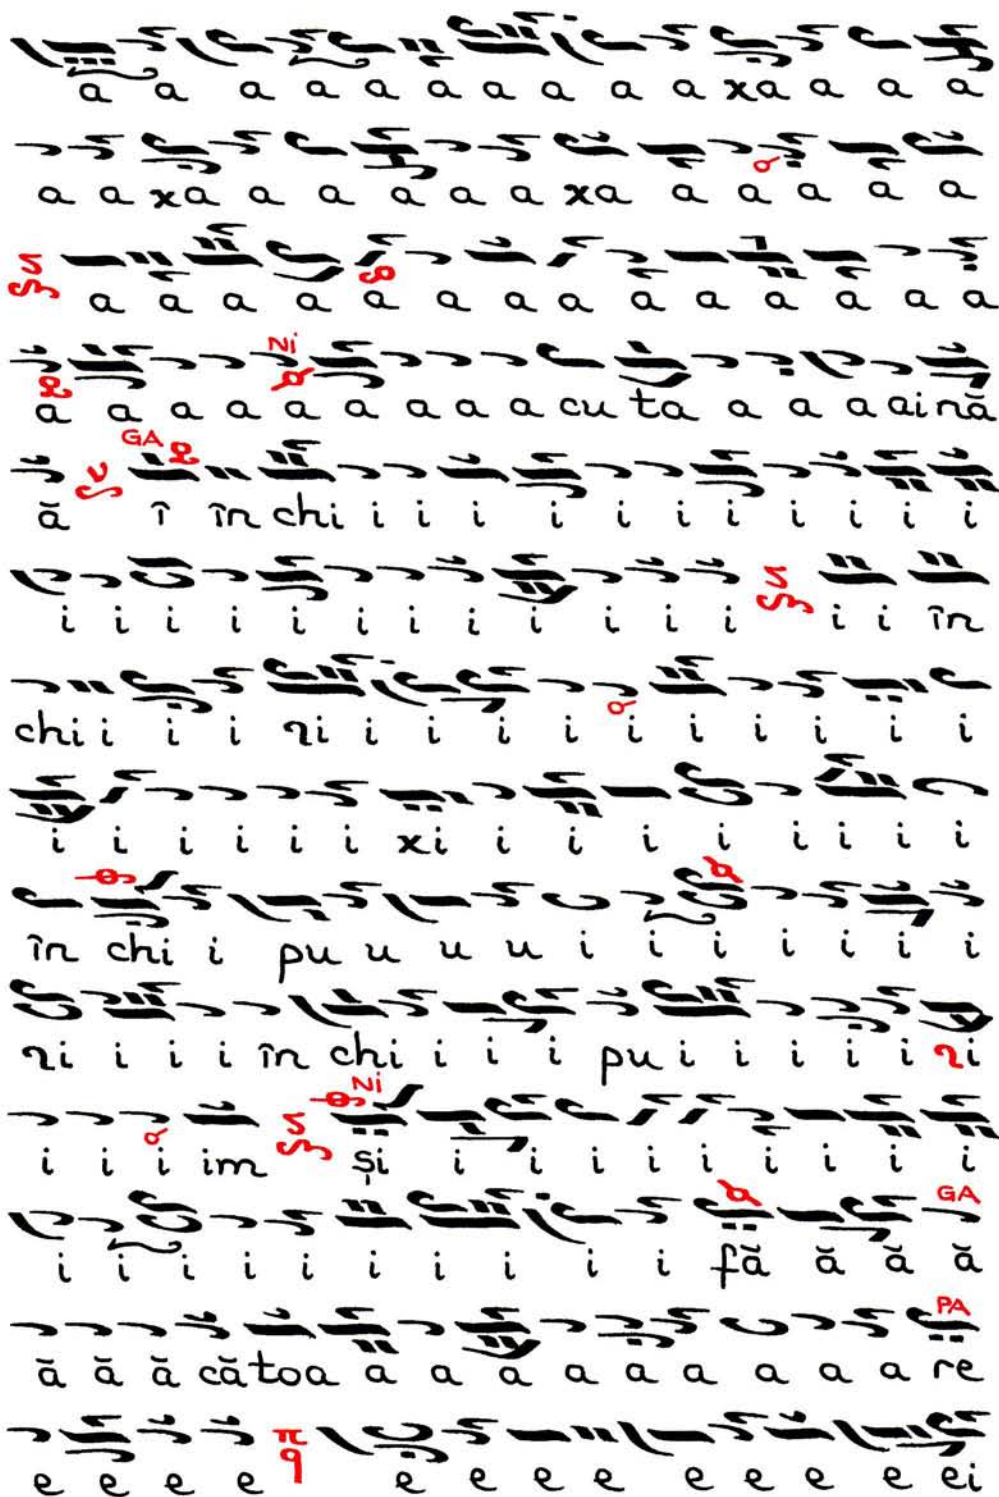 a a a a a a a a a a xa a a a
a a xa a a a a a xa a a a a a
a a a a a a a a a a a a a a
Ni
a a a a a a a a a cu ta a a a ai nă
GA
ă î în chi i i i i i i i i i i i
i i i i i i i i i i i i i i în
chi i i i ri i i i i i i i i i i
i i i i i i xi i i i i i i i i
în chi i pu u u u i i i i i i i
ri i i i în chi i i i pu i i i i i ri
Ni
i i i im și i i i i i i i i i
GA
i i i i i i i i i i fă ă ă ă
PA
ă ă ă că toa a a a a a a a a re
π
q
e e e e e e e e e e e e ei